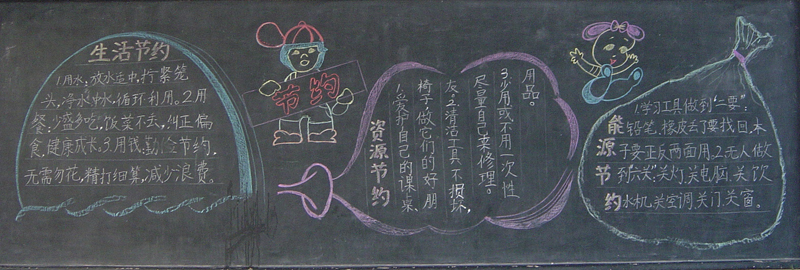 生活节约
1.用水:放水适中,拧紧笼
头,净水中水,循环利用。2.用
餐:少盛多吃,饭菜不丢,纠正偏
食,健康成长。3.用钱:勤俭节约,
无需勿花,精打细算,减少浪费。
节约
资源节约
1.爱护自己的课桌
椅子,做它们的好朋
友;2.清洁工具不损坏,
尽量自己来修理;
3.少用或不用一次性
用品。
能源节约
1.学习工具做到"二要":
铅笔、橡皮丢了要找回,本
子要正反两面用。2.无人做
到"六关":关灯、关电脑、关饮
水机、关空调、关门、关窗。